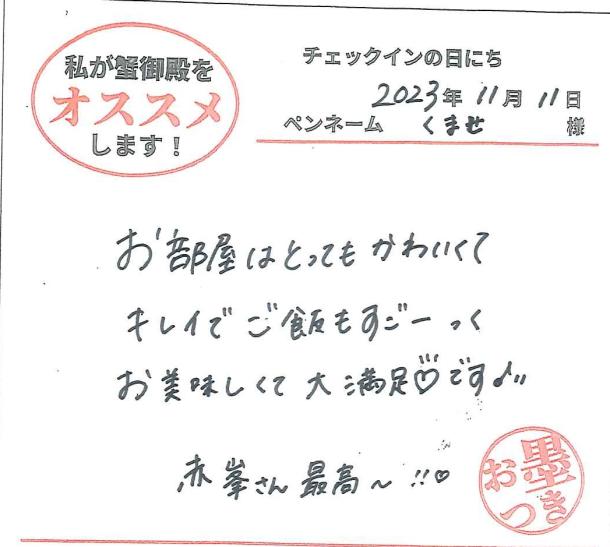 私が蟹御殿を
オススメ
します！
チェックインの日にち
2023年 11月 11日
ペンネーム くませ 様
お部屋はとってもかわいくて
キレイで ご飯もすごーっく
お美味しくて 大満足♡です♪"
赤峯さん 最高〜!!♡
お墨つき